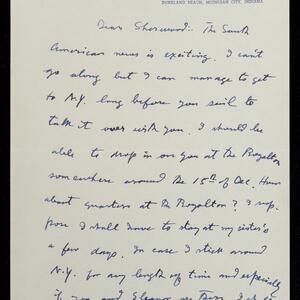 DUNELAND BEACH, MICHIGAN CITY, INDIANA
Dear Sherwood: The South
American news is exciting. I can't
go along but I can manage to get
to N.Y. long before you sail to
talk it over with you. I should be
able to drop in on you at the Royalton
somewhere around the 15th of Dec. How
about quarters at the Royalton? I sup-
pose I shall have to stay at my sister's
a few days. In case I stick around
N.Y. for any length of time and especially
if you and Eleanor are